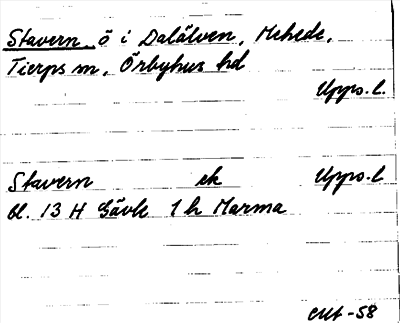 Stavern ö i Dalälven, Mehede,
Tierps sn, Örbyhus hd
Upps. l.
Stavern ek Upps. l
bl. 13 H Gävle 1 h Marma
-58